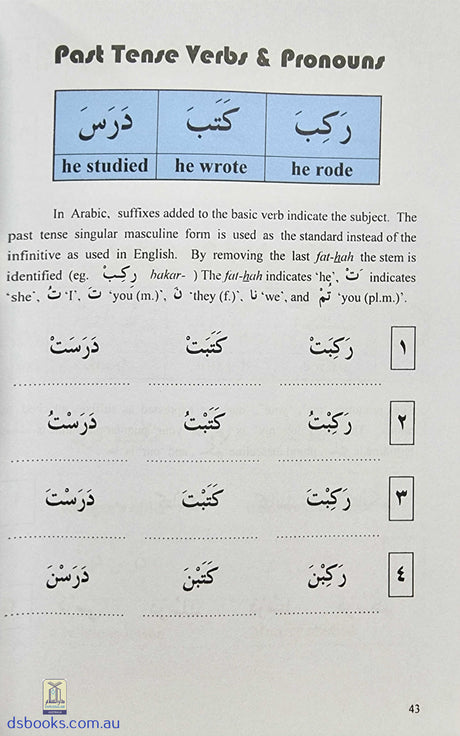 Past Tense Verbs & Pronouns
رَكِبَ كَتَبَ دَرَسَ
he studied he wrote he rode
In Arabic, suffixes added to the basic verb indicate the subject. The
past tense singular masculine form is used as the standard instead of the
infinitive as used in English. By removing the last fat-hah the stem is
identified (eg. رَكِبْ hakar- ) The fat-hah indicates ‘he’, ـَتْ indicates
‘she’, تُ ‘I’, تَ ‘you (m.)’, نَ ‘they (f.)’, نا ‘we’, and تُمْ ‘you (pl.m.)’.
١ رَكِبَتْ كَتَبَتْ دَرَسَتْ
٢ رَكِبْتُ كَتَبْتُ دَرَسْتُ
٣ رَكِبْتَ كَتَبْتَ دَرَسْتَ
٤ رَكِبْنَ كَتَبْنَ دَرَسْنَ
43
dsbooks.com.au